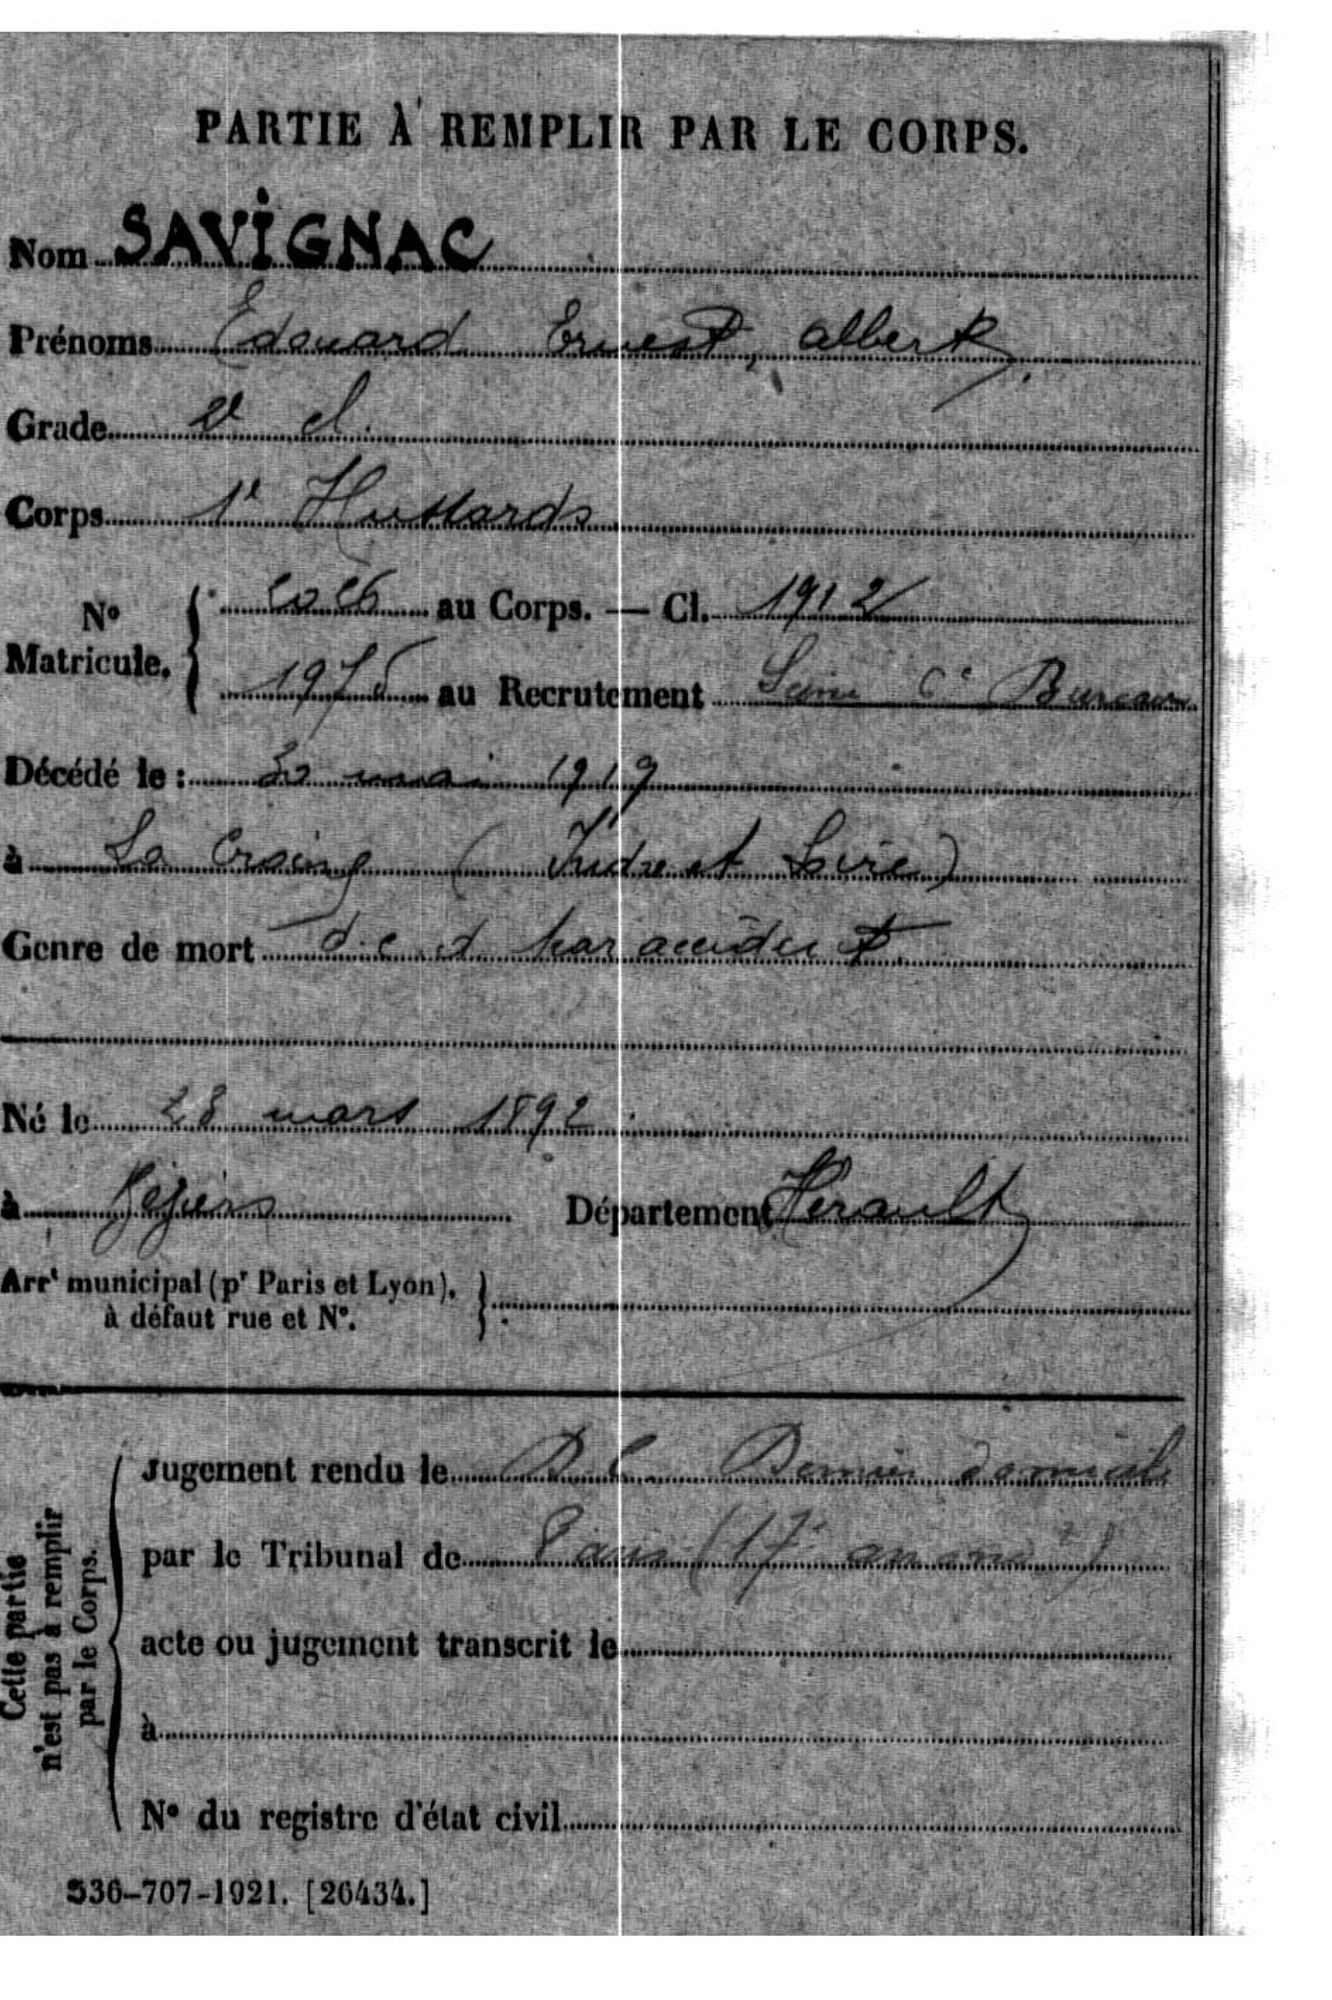 PARTIE À REMPLIR PAR LE CORPS.
Nom SAVIGNAC
Prénoms Edouard Ernest, Albert
Grade 2e cl.
Corps 1e Hussards
N° Matricule. au Corps. — Cl. 1912
1975 au Recrutement Seine 6e Bureau
Décédé le : mai 1919
à La (Indre et Loire)
Genre de mort par accident
Né le 28 mars 1892
à Béziers Département Hérault
Arrt municipal (pr Paris et Lyon),
à défaut rue et N°.
Cette partie n'est pas à remplir par le Corps.
Jugement rendu le Dernier domicile
par le Tribunal de Paris (17e
acte ou jugement transcrit le
à
N° du registre d'état civil
536-707-1921. [26434.]